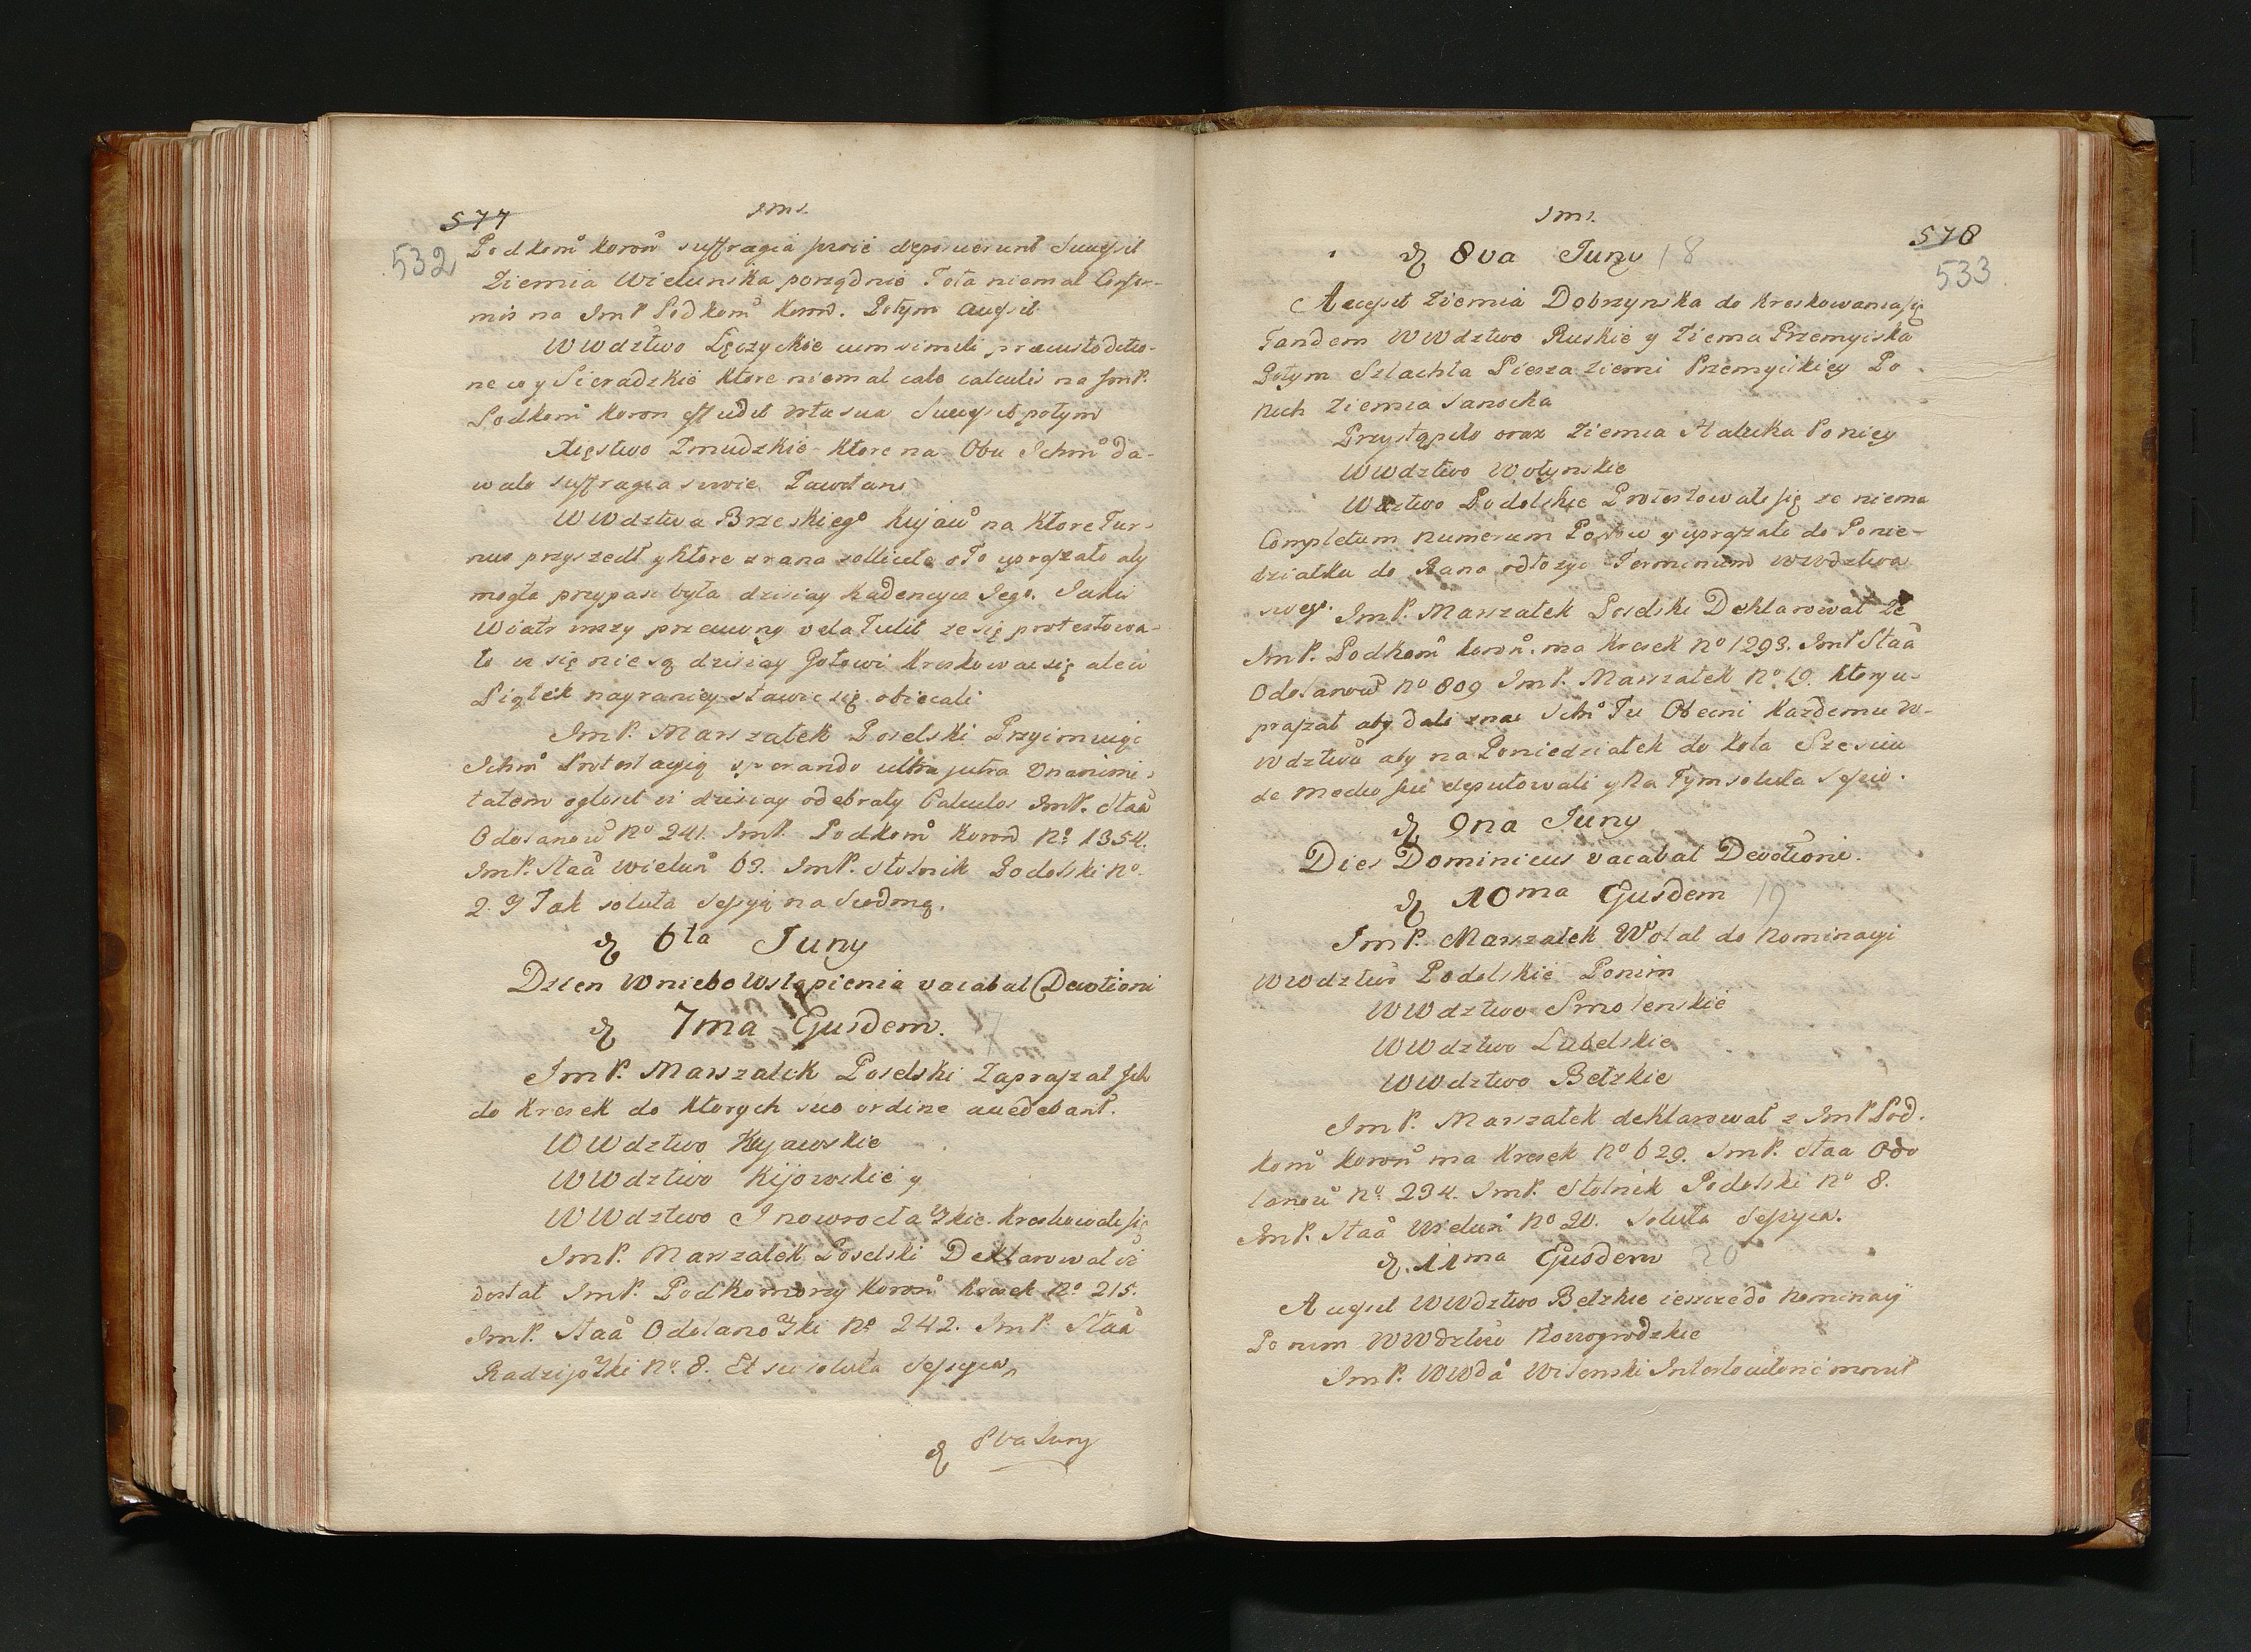 577
532
Jms.
Podkom Koron suffragia swoie deposuerunt Succeszit
Ziemia Wielunska porządnie Tota niemal Confor-
mis na ImP Podkom Koron. Potym accessit
WWdztwo Lęczyckie cum simili praecustoditio-
ne y Sieradzkie Ktore niemal cale calculis na ImP.
Podkom Koron effudit vota sua Succesit potym
Xięstwo Zmudzkie Ktore na Obu Ichm da-
wało suffragia swoie Powstano
WWdztwa Brzeskiego Kujaw na Ktore Tur-
nus przyszedł y Ktore z rana o To upraszało aby
mogła przypaść była dzisiay Kadencya Jego. Jako
Wiatr inszy przeciwny vela Tulit ze się protestowa-
ło iz się nie są dzisiay Gotowi Kreskowac się ale w
Piątek nayraniey stawic się obiecali
ImP. Marszałek Poselski Przyimuiąc
Ichm Protestacyią sperando ultra jutra Unanimi-
tatem ogłosił iz dzisiay odebrały Calculos ImP. Staa
Odolanow No 241. ImP. Podkom Koron No 1354.
ImP. Staa Wielun 63. ImP. Stolnik Podolski No
2. y Tak soluta Sessyia na Siodmą.
d 6ta Juny
Dzien Wniebo Wstąpienia vacabat Devotioni
d 7ma Ejusdem. 7
ImP. Marszałek Poselski Zapraszał Ich
do Kresek do Ktorych suo ordine accedebant.
WWdztwo Kujawskie
WWdztwo Kijowskie y
WWdztwo Inowrocłaskie. Kreskowali się
ImP. Marszałek Poselski Deklarował iz
dostał ImP. Podkomorzy Koron Kresek No 215.
ImP. Staa Odolanoski No 242. ImP. Staa
Radziejoski No 8. Et sic soluta Sessya
d 8va Juny
Jms.
578
533
d 8va Juny 18
Accessit Ziemia Dobrzynska do Kreskowania się
Tandem WWdztwo Ruskie y Ziema Przemyska
Potym Szlachta Piesza Ziemi Przemyskiey Po
Nich Ziemia Sanocka
Przystąpiło oraz Ziemia Halicka Po niey
WWdztwo Wołynskie
Wdztwo Podolskie Protestowało się ze niema
Completum Numerum Posłow y upraszało do Ponie-
działku do Rana odłożyć Terminum WWdztwa
swego. ImP. Marszałek Poselski Deklarował Ze
ImP. Podkom Koron. ma Kresek No 1293. ImP Staa
Odolanow No 809 ImP. Marszałek No 19. Ktory u-
praszał aby dali znac Ichm Tu Obecni Kazdemu W-
wdztwu aby na Poniedziałek do Koła Szesciu
de medio sui deputowali y Na Tym soluta Sessio.
d 9na Juny
Dies Dominicus vacabat Devotioni.
d 10ma Ejusdem 19
ImP. Marszałek Wołał do Nominacyi
WWdztwo Podolskie Ponim
WWdztwo Smolenskie
WWdztwo Lubelskie
WWdztwo Bełzkie
ImP. Marszałek deklarował z ImP Pod.
kom Koron ma Kresek No 629. ImP. Staa Odo
lanow No 234. ImP. Stolnik Podolski No 8.
ImP. Staa Wielun No 20. Soluta Sessya.
d 11ma Ejusdem 20
Accessit WWdztwo Bełzkie ieszcze do Nominacyi
Po nim WWdztwo Nowogrodzkie
ImP. WWda Wilenski movit